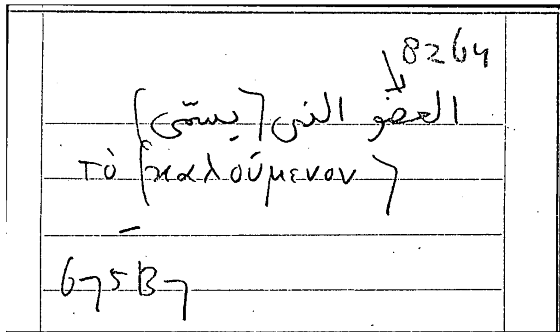 8264
العضو الذي [يسمّى]
τὸ [καλούμενον]
675B7